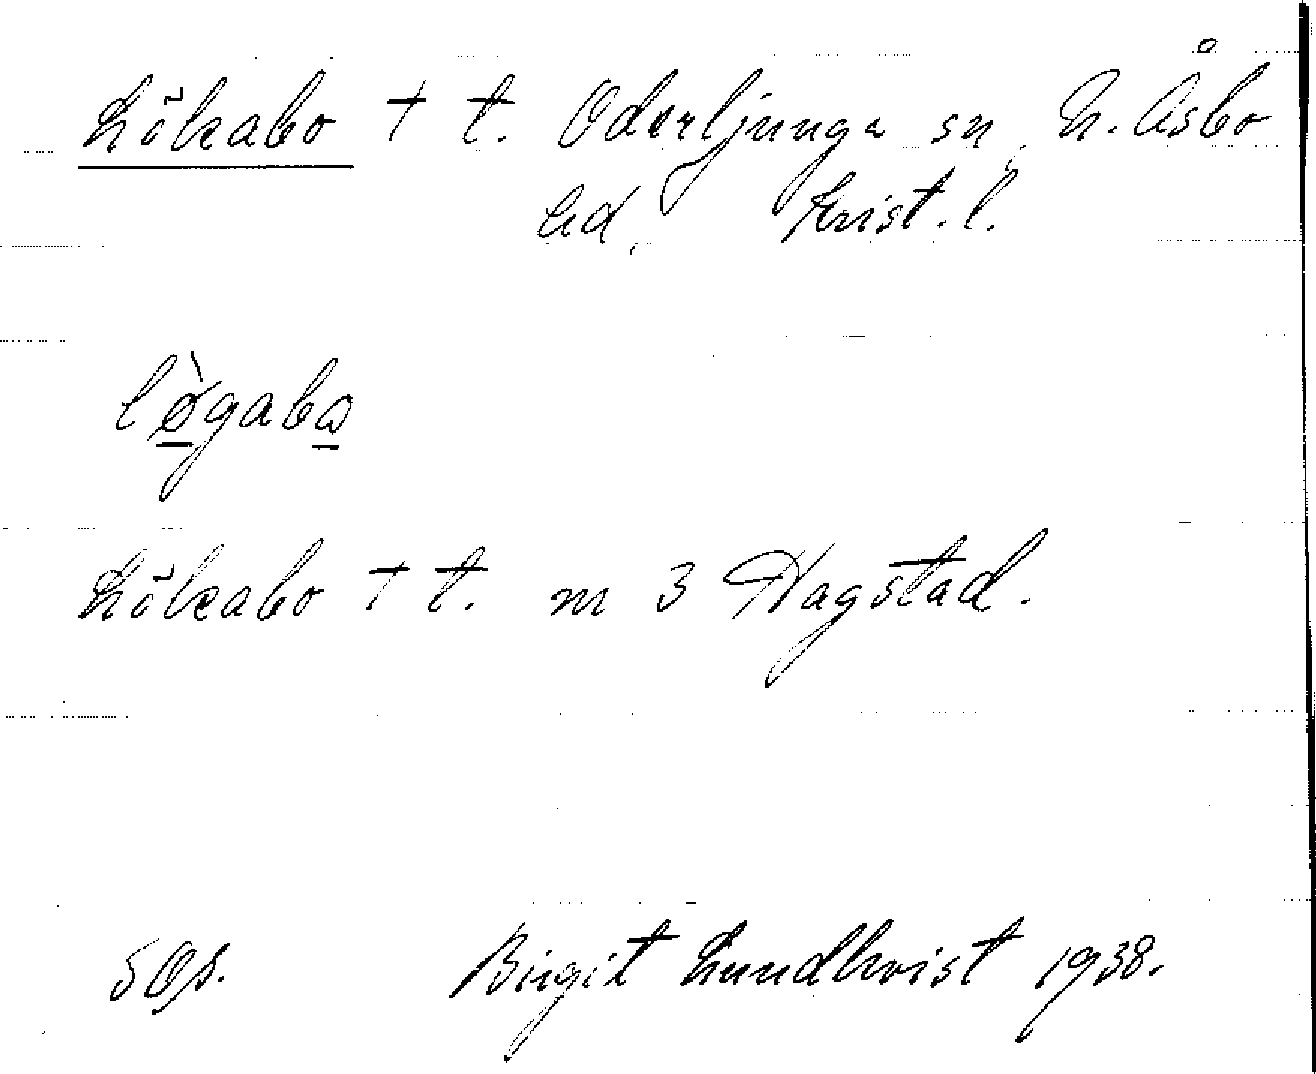 Lökabo † t. Oderljunga sn N. Åsbo
hd. Krist. l.
lø̀gabo
Lökabo † t. m 3 Hagstad.
Birgit Lundkvist 1938.